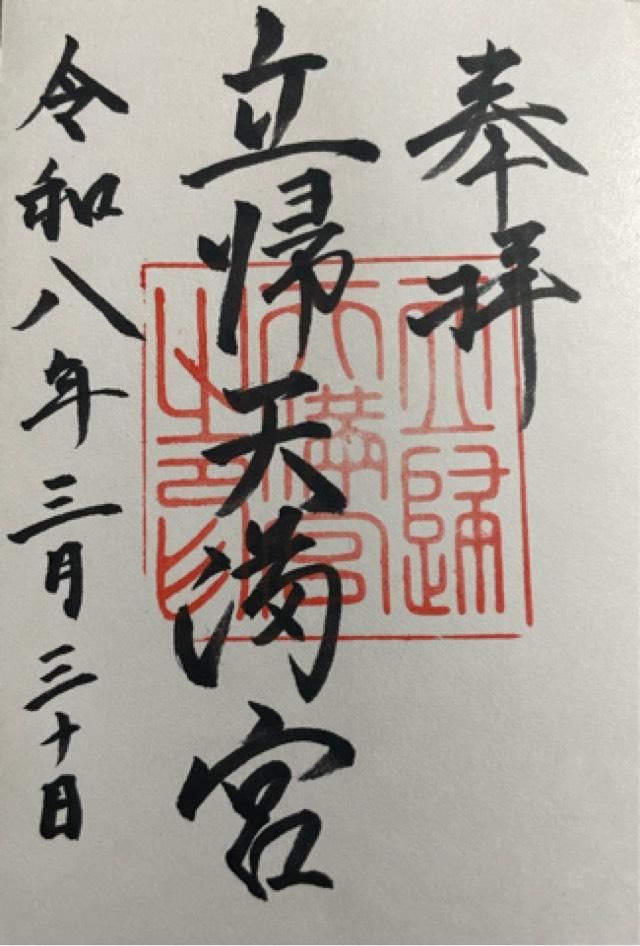 奉拝
立帰天満宮
令和八年三月三十日
立歸
天滿宮
之印